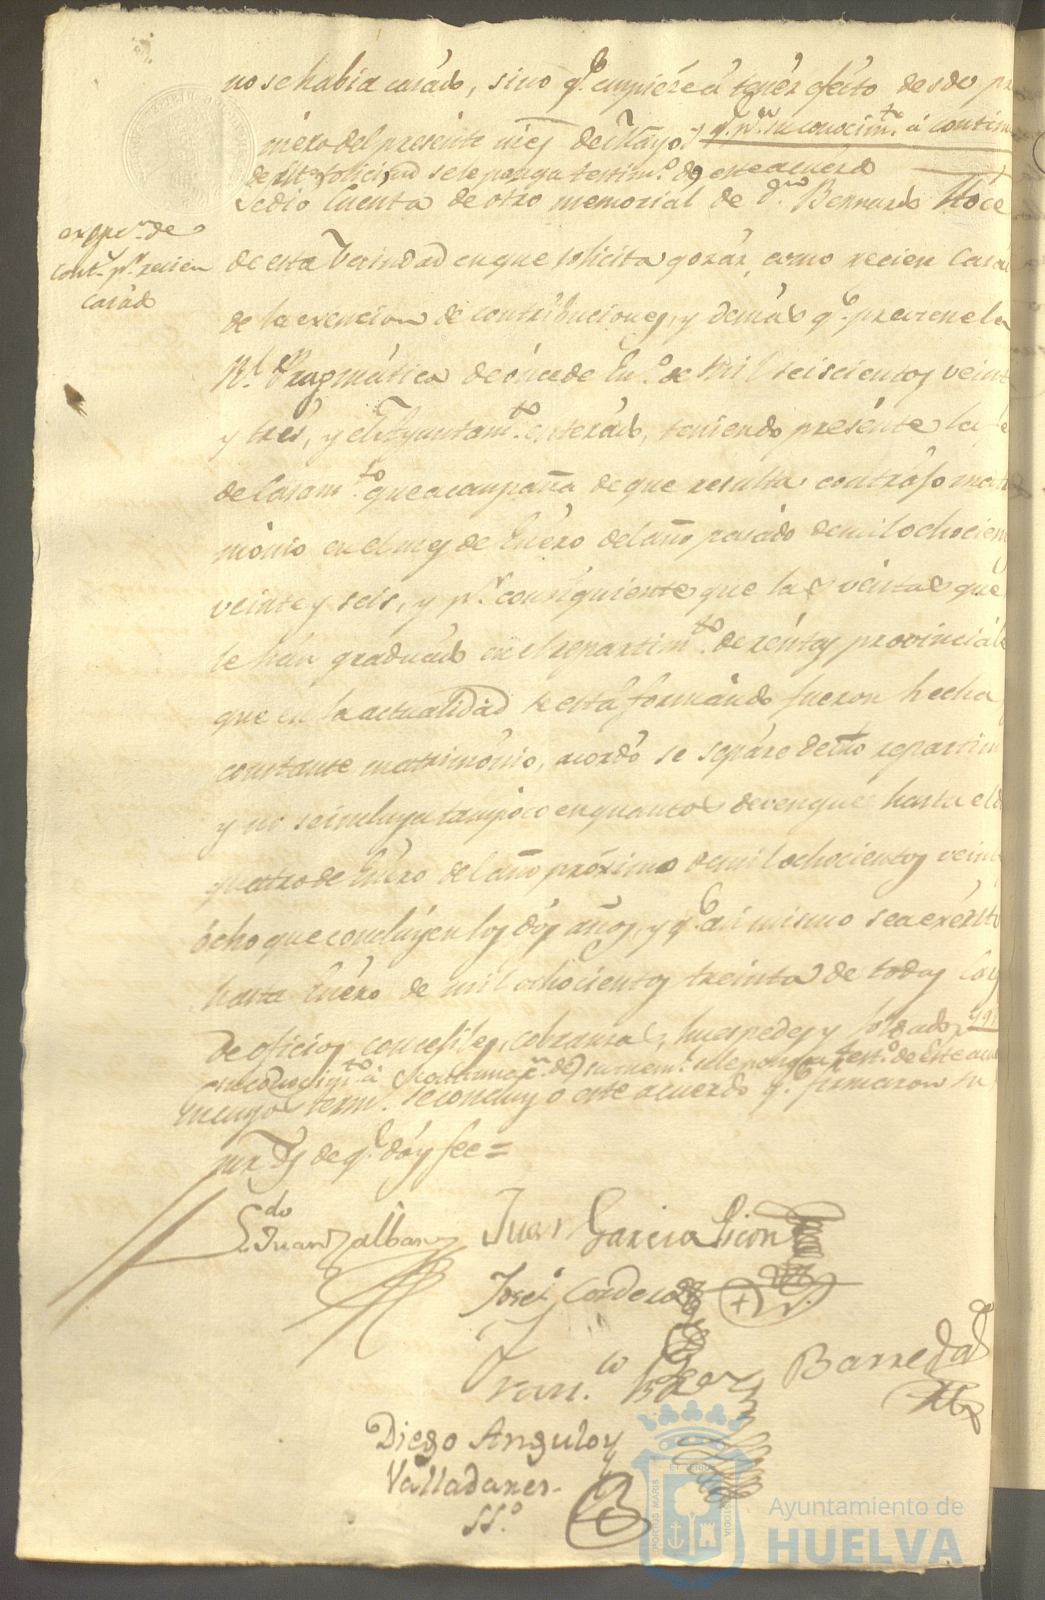 no se habia casado, sino q.e empiece á tener efecto desde pri
mero del presente mes de Mayo. y q.e p.a su conocim.to á contin
de dha solicitud se le ponga testim.o de este acuerdo
exon.on de
cont.s p.r recien
casado
Se dio Cuenta de otro memorial de d.n Bernardo
de esta Vecindad en que solicita gozar, como recien Casad
de la exencion de contribuciones, y demas q.e previene la
R.l Pragmática de once de En.o de mil seiscientos veint
y tres, y el Ayuntam.to enterado, teniendo presente la fe
de Casam.to que acompaña de que resulta contrajo matri
mónio en el mes de Enero del año pasado de mil ochocien
veinte y seis, y p.r consiguiente que las ventas que
le han graduado en el repartim.to de rentas provinciales
que en la actualidad se está formando fueron hecha
constante matrimonio, acordó se sepáre de dho repartim
y no se incluya tampoco en quantos devengue hasta el d
quatro de Enero del año próximo de mil ochocientos veint
ócho que concluyen los dos años, y q.e asi mismo sea exénto
hasta Enero de mil ochocientos treinta de todas Carg
de oficios concejiles, cobranzas, huespedes y soldados, y q.e
su conocim.to á continuac.on de su mem.l se le ponga test.o de este acu
En cuyos term.s se concluyó este acuerdo q.e firmaron su
mrz.ds de q.e doy fee =
L.do Juan J. Alban
Juan Garcia Picon
José Cordero
Fran.co
Barreda
Diego Angulo y
Valladares.
SS.o
PORTUS MARIS
ET TERRE
CUSTODIA
Ayuntamiento de
HUELVA